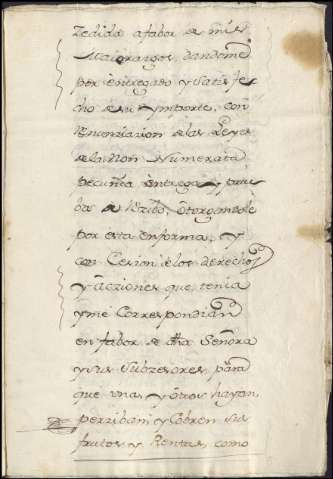 zedida a fabor de mis
Maiorazgos, dandome
por entregado y satisfe
cho de su ymporte, con
Renunziazion de las Leyes
de la Non Numerata
pecunia, entrega y prue
ba de Rezibo, otorgandole
por esta en forma, y
con Cesion de los derechos
y acziones que tenia
y me Correspondian
en fabor de dha Señora
y sus Subzesores, para
que unas y otros hayan,
perziban y Cobren sus
frutos y Rentas, como